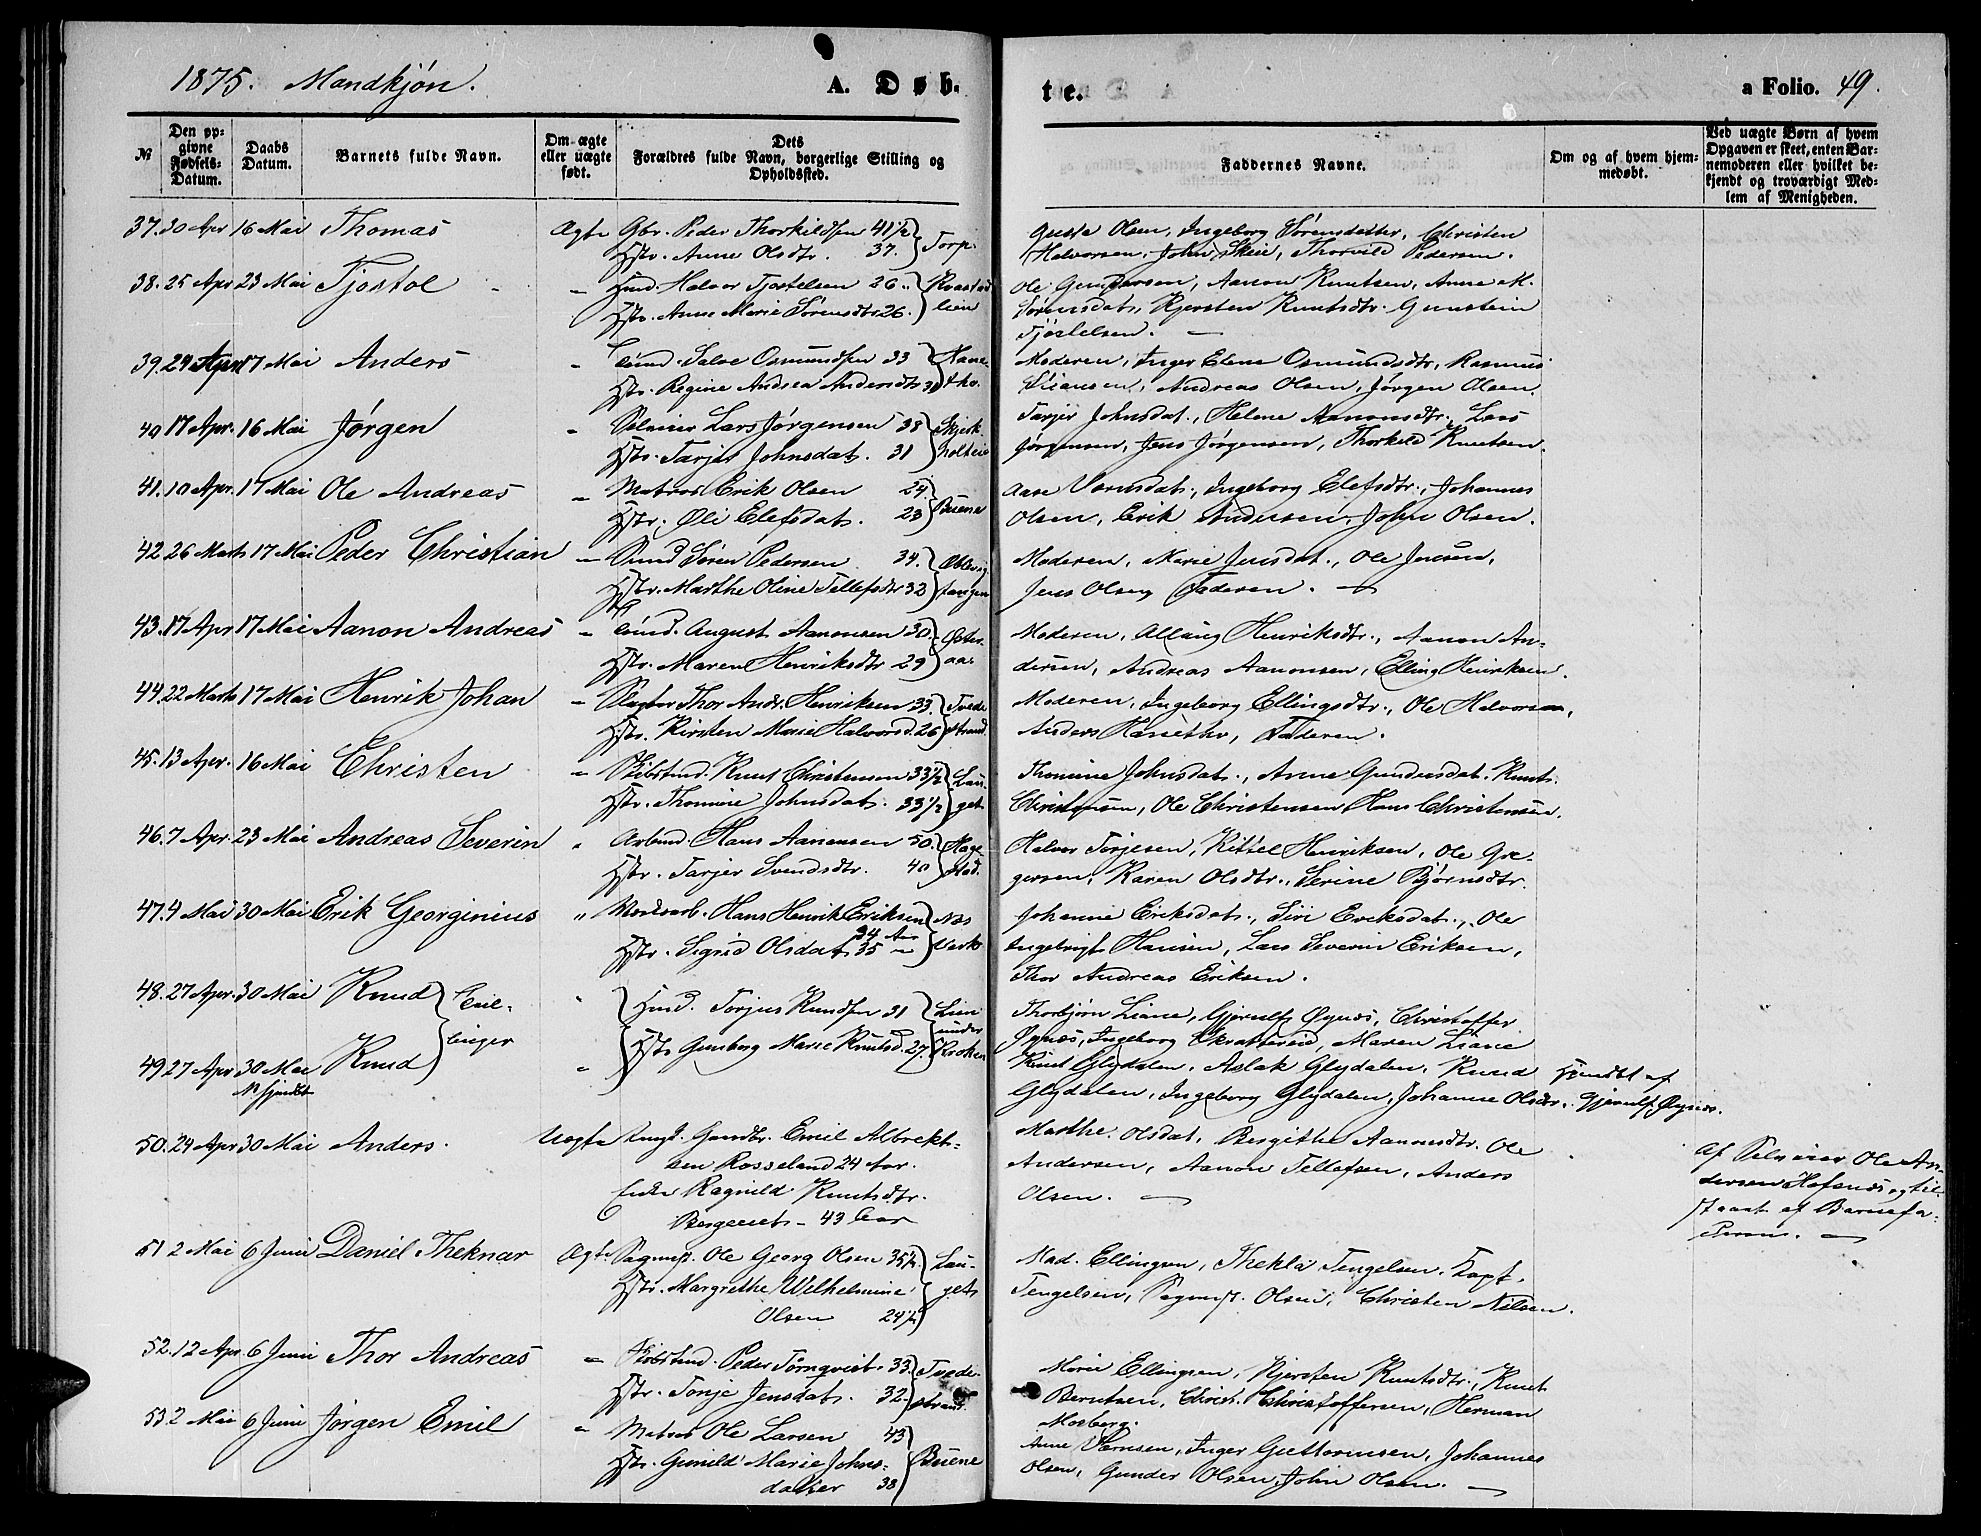 1875. Mandkjøn.
A. Døb-
te.
a Folio. 49.
№
Den op-
givne
Fødsels-
Datum.
Daabs
Datum.
Barnets fulde Navn.
Om ægte
eller uægte
født.
Dets
Forældres fulde Navn, borgerlige Stilling og
Opholdssted.
Faddernes Navne.
Om og af hvem hjem-
medøbt.
Ved uægte Børn af hvem
Opgaven er skeet, enten Bar-
nemoderen eller hvilket be-
kjendt og troværdigt Med-
lem af Menigheden.
37. 30 Apr 16 Mai Thomas Ægte Gbr. Peder Thorkildsen 41½ Torp.
Hstr. Anne Olsdtr. 37.
Olsen, Ingeborg Sørensdatter, Christen
Halvorsen, John Skeie, Thorvild Pedersen.
38. 25 Apr 23 Mai Tjostol - Hmd. Halvor Tjostelsen 26
Hstr. Anne Marie Sørensdtr 26. leien
Ole Gundersen, Aanon Knutsen, Anne M.
Sørensdat., Kjersten Knutsdtr. Gunstein
Tjostelsen.
39. 24 Apr 17 Mai Anders - Tømd. Salve Osmundsen 33 Hane-
Hstr. Regine Andrea Andersdtr 31 tho.
Moderen, Inger Elene Osmundsdtr, Rasmus
Andreas Olsen, Jørgen Olsen.
40 17 Apr. 16 Mai Jørgen - Selveier Lars Jørgensen 38 Skjerk-
Hstr. Tarjer Johnsdat. 31 holt
Tarjer Johnsdat., Helene Aanonsdtr., Lars
Jørgensen, Jens Jørgensen, Thorkild Knutsen.
41. 10 Apr. 17 Mai Ole Andreas - Matros Erik Olsen 24. Buene
Hstr. Oli Elefsdat. 23
Aase Ingeborg Elefsdtr., Johannes
Olsen, Erik Andersen, John Olsen.
42. 26 Marts 17 Mai Peder Christian - Søren Pedersen 34.
Hstr. Marthe Oline Tellefsdtr 32 tangen
Moderen, Marie Jensdat., Ole Jensen,
Jens Olsen, Faderen.
43. 17 Apr 17 Mai Aanon Andreas - Tømd. August Aanonsen 30 Øster-
Hstr. Maren Henriksdtr 29 aas
Moderen, Henriksdtr., Aanon An-
dersen, Andreas Aanonsen, Elling Henriksen.
44. 22 Marts 17 Mai Henrik Johan - Slagter Thor Andr. Henriksen 33. Tvede-
Hstr. Kirsten Marie Halvorsd. 26 strand.
Moderen, Ingeborg Ellingsdtr., Ole Halvorsen,
Anders Hanetho, Faderen.
45. 13 Apr. 16 Mai Christen - Skibstmd. Knut Christensen 33½ Lau-
Hstr. Thomine Johnsdat. 33½ get
Thomine Johnsdat., Anne Gundersdat. Knut
Christensen, Ole Christensen Hans Christensen.
46. 7 Apr. 23 Mai Andreas Severin " Arbmd. Hans Aanonsen 50. Hage-
Hstr. Tarjer Svendsdtr. 40 stad.
Halvor Torjesen, Kittel Henriksen, Ole Gre-
gersen, Karen Olsdtr., Serine Bjørnsdtr.
47. 4 Mai 30 Mai Erik Georginius " Værksarb. Hans Henrik Eriksen Næs
34 Aar
Hstr. Sigrid Olsdat 35 " Værk
Johanne Eriksdat., Siri Eriksdat., Ole
Ingebrigt Hansen, Lars Severin Eriksen,
Thor Andreas Eriksen.
48. 27 Apr. 30 Mai Knud Tvil-
linger " Hmd. Torjus Knudsen 31 Lien
under
Hstr Gunborg Marie Knutsd. 27. Kroken
49 27 Apr 30 Mai Knud "
Thorbjørn Liane, Gjerulf Øynæs, Christoffer
Øynæs, Ingeborg Maren Liane
Knut Glydalen, Aslak Glydalen, Knud
Glydalen, Ingeborg Glydalen, Johanne Olsdtr.
Hjemdbt af
Gjerulf Øynæs.
50. 24 Apr 30 Mai Anders. Uægte Ungk. Gaardbr. Emil Albrekt-
sen Rosseland 24 Aar.
Enke Ragnild Knutsdtr.
43 Aar
Marthe Olsdat. Bergithe Aanonsdtr. Ole
Andersen, Aanon Tellefsen, Anders
Olsen.
Af Selveier Ole An-
dersen Hafsnæs og til-
staaet af Barnefa-
deren.
51 2 Mai 6 Juni Daniel Theknar Ægte Sagmst. Ole Georg Olsen 35½ Lau-
Hstr. Margrethe Wilhelmine get
Olsen 24½
Mad. Ellingsen, Thekla Tengelsen, Kapt.
Tengelsen, Sagmst. Olsen, Christen Nilsen.
52. 12 Apr. 6 Juni Thor Andreas - Skibstmd. Peder Törnqvist 33. Tvede-
Hstr. Tonje Jensdat. 32. strand.
Marie Ellingsen, Kjersten Knutsdtr., Knut
Berntsen, Christ. Christoffersen, Herman
Mosberg.
53. 2 Mai 6 Juni Jørgen Emil " Matros Ole Larsen 43
Hstr. Gunild Marie Johns- Buene
datter 38
Anne Inger Guttormsen, Johannes
Olsen, Gunder Olsen, John Olsen.